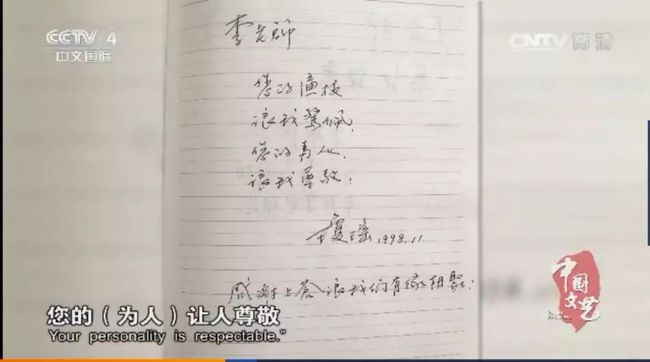 CCTV 4
中文国际
CNTV 高清
李老师
您的演技
让我惊佩,
您的为人,
让我尊敬!
琼瑶 1998.11
感谢上苍让我们有缘相聚!
中国文艺
您的(为人)让人尊敬
Your personality is respectable."